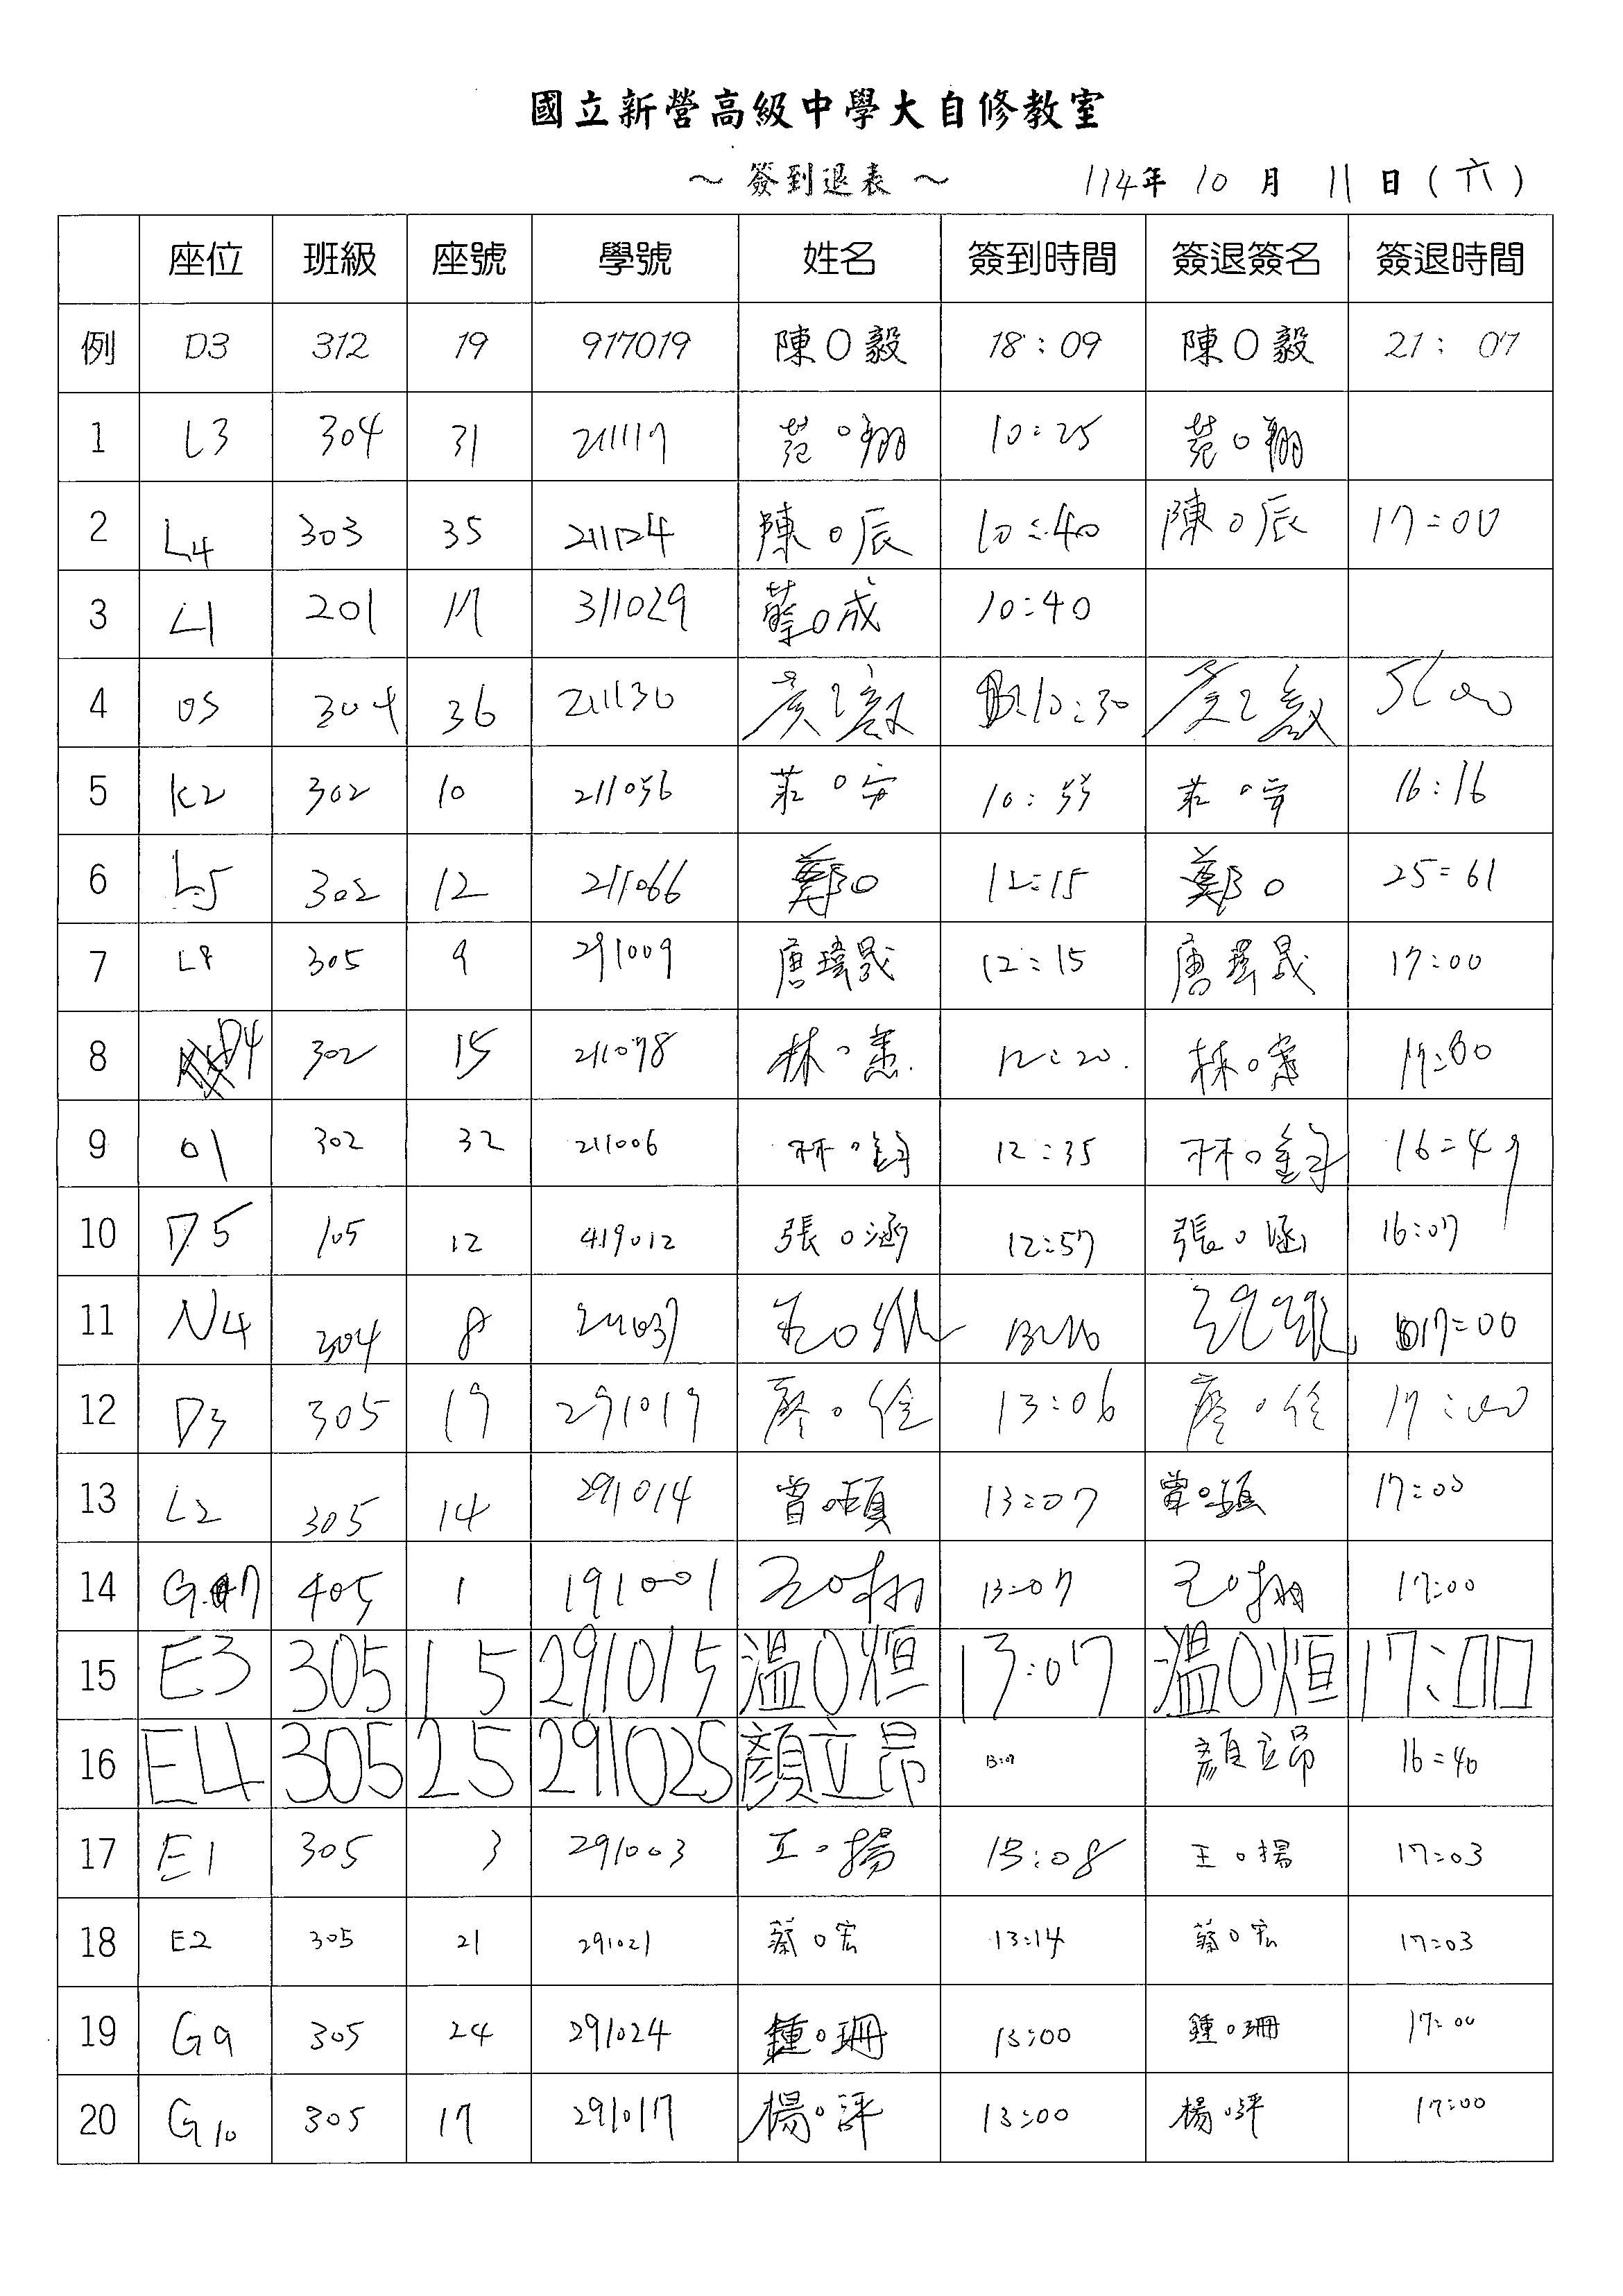 國立新營高級中學大自修教室
～ 簽到退表 ～ 114年 10 月 11 日 ( 六 )
座位 班級 座號 學號 姓名 簽到時間 簽退簽名 簽退時間
例 D3 312 19 917019 陳O毅 18:09 陳O毅 21: 07
1 L3 304 31 211117 范O翔 10:25 范O翔
2 L4 303 35 211124 陳O辰 10:40 陳O辰 17:00
3 L1 201 17 311029 蔡O成 10:40
4 O5 304 36 211130 10:30
5 K2 302 10 211056 莊O安 10:55 莊O安 16:16
6 L5 302 12 211066 鄭O 12:15 鄭O 25:61
7 L8 305 9 291009 唐瑋晟 12:15 唐瑋晟 17:00
8 D4 302 15 211078 林O憲 12:20 林O憲 17:00
9 O1 302 32 211006 林O錞 12:35 林O錞 16:49
10 D5 105 12 419012 張O涵 12:57 張O涵 16:07
11 N4 304 8 211037 17:00
12 D3 305 19 291019 廖O佺 13:06 廖O佺 17:00
13 L2 305 14 291014 曾O碩 13:07 曾O碩 17:00
14 G7 405 1 191001 王O翔 13:07 王O翔 17:00
15 E3 305 15 291015 溫O恒 13:07 溫O恒 17:00
16 E4 305 25 291025 顏立昂 13:07 顏立昂 16:40
17 E1 305 3 291003 王O揚 13:08 王O揚 17:03
18 E2 305 21 291021 蔡O宏 13:14 蔡O宏 17:03
19 G9 305 24 291024 鍾O珊 13:00 鍾O珊 17:00
20 G10 305 17 291017 楊O評 13:00 楊O評 17:00